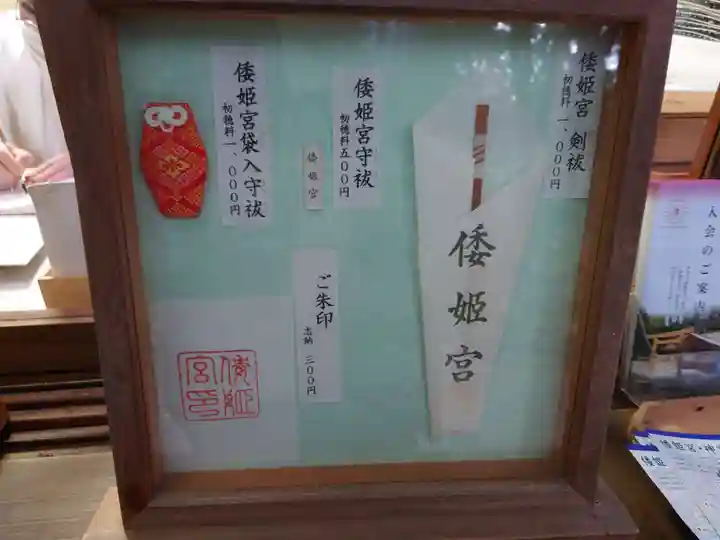 倭姫宮 剣祓
初穂料 一、000円
倭姫宮
倭姫宮守祓
初穂料 五00円
倭姫宮
ご朱印
志納 三00円
倭姫宮袋入守祓
初穂料 一、000円
倭姫
宮印
入会のご案内
倭姫宮・神
倭姫